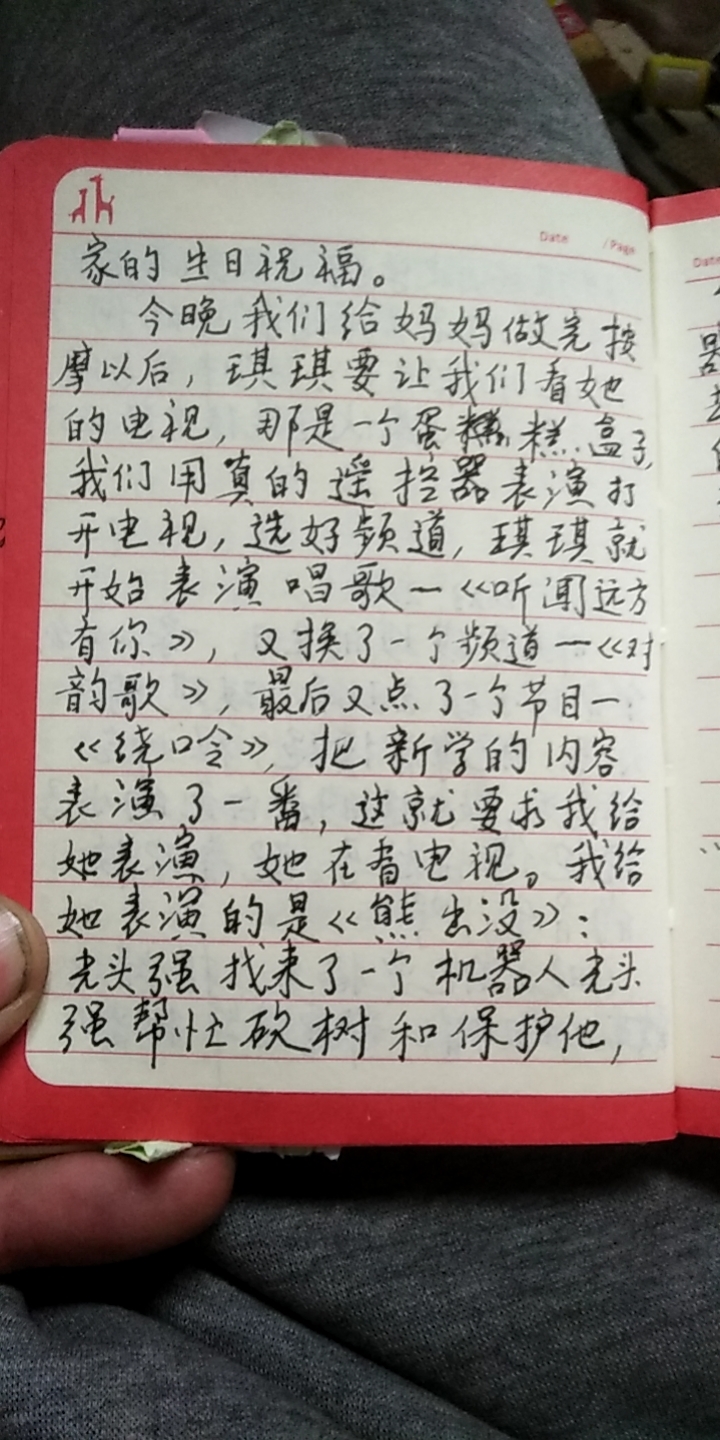 Date /Page
家的生日祝福。
今晚我们给妈妈做完按
摩以后，琪琪要让我们看她
的电视，那是一个蛋糕盒子，
我们用真的遥控器表演打
开电视，选好频道，琪琪就
开始表演唱歌一《听闻远方
有你》，又换了一个频道一《对
韵歌》，最后又点了一个节目一
《绕口令》，把新学的内容
表演了一番，这就要求我给
她表演，她在看电视。我给
她表演的是《熊出没》：
光头强找来了一个机器人光头
强帮忙砍树和保护他，
Date